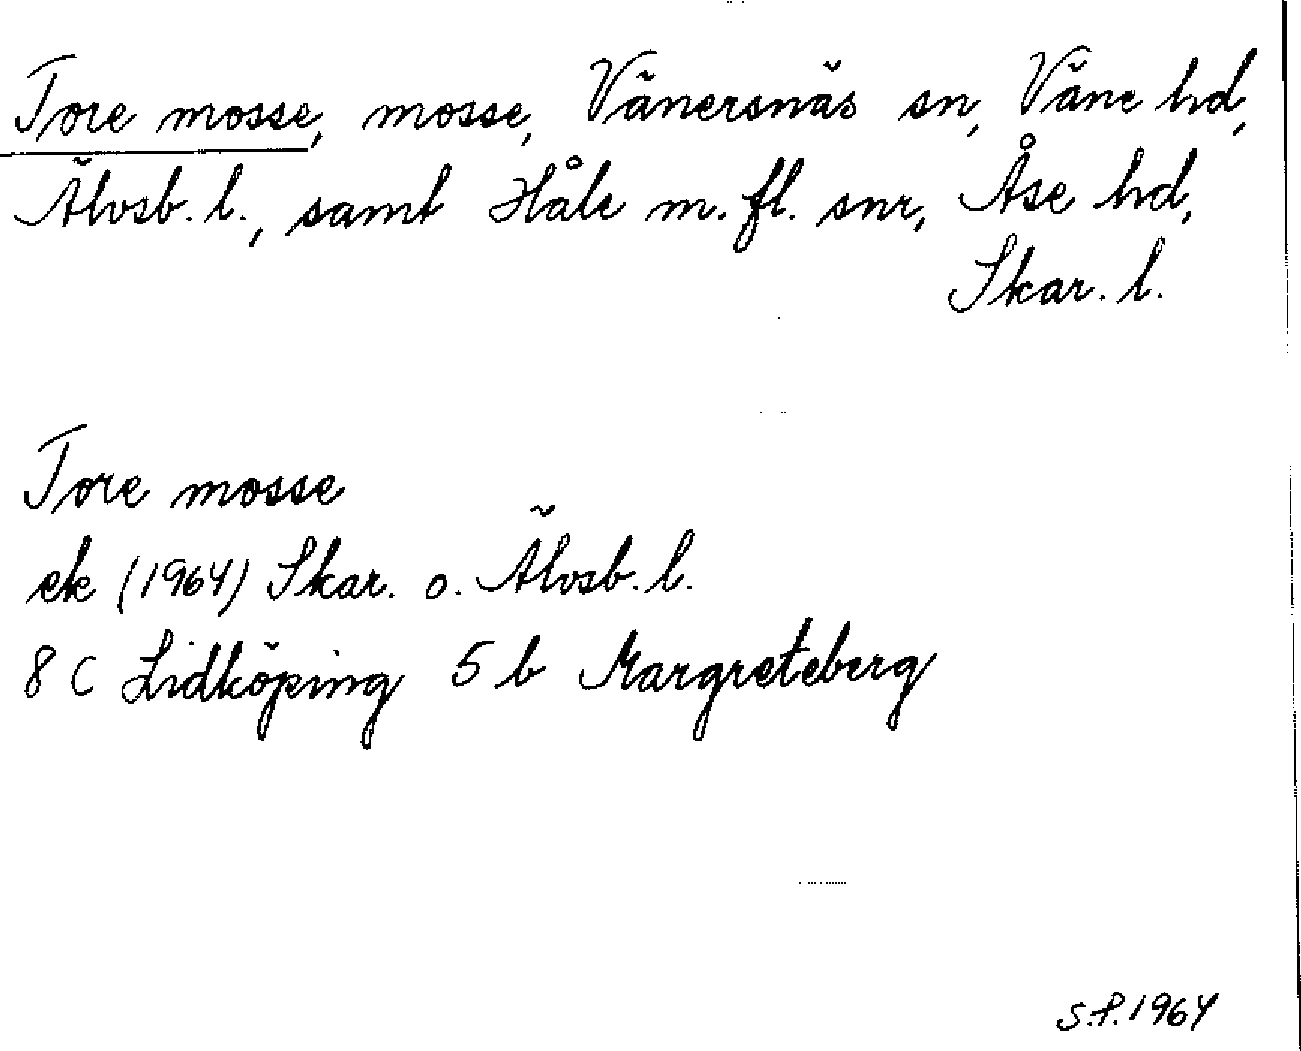 Tore mosse, mosse, Vänersnäs sn, Väne hd,
Älvsb. l., samt Håle m. fl. snr, Åse hd,
Skar. l.
Tore mosse
ek (1964) Skar. o. Älvsb. l.
8 C Lidköping 5 b Margreteberg
S.P. 1964